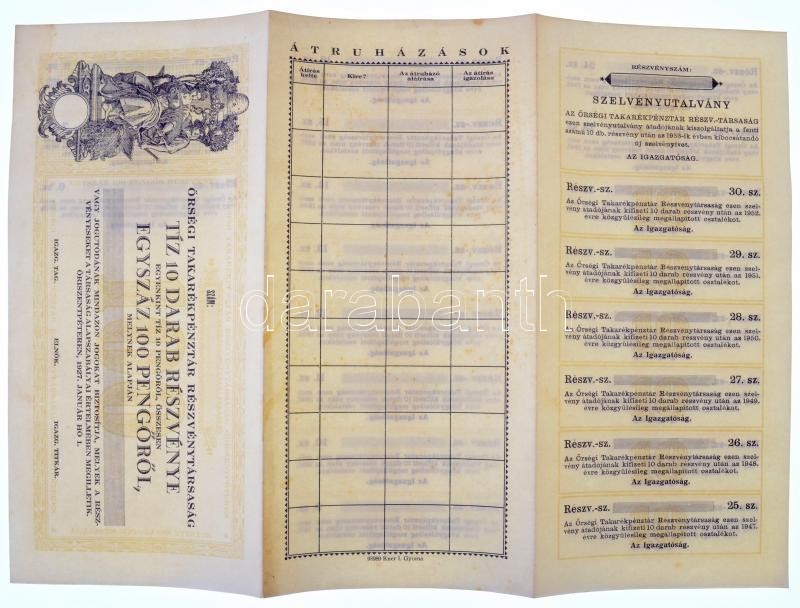 SZÁM:
ŐRSÉGI TAKARÉKPÉNZTÁR RÉSZVÉNYTÁRSASÁG
TÍZ 10 DARAB RÉSZVÉNYE
EGYENKINT TÍZ 10 PENGŐRŐL, ÖSSZESEN
EGYSZÁZ 100 PENGŐRŐL,
MELYNEK ALAPJÁN
VAGY JOGUTÓDÁNAK MINDAZON JOGOKAT BIZTOSÍTJA, MELYEK A RÉSZ-
VÉNYESEKET A TÁRSASÁG ALAPSZABÁLYAI ÉRTELMÉBEN MEGILLETIK.
ŐRISZENTPÉTEREN, 1927. JANUÁR HÓ 1.
IGAZG. TAG. ELNÖK. IGAZG. TITKÁR.
ÁTRUHÁZÁSOK
Átírás kelte
Kire?
Az átruházó aláírása
Az átírás igazolása
98980 Kner I. Gyoma
RÉSZVÉNYSZÁM:
SZELVÉNYUTALVÁNY
AZ ŐRSÉGI TAKARÉKPÉNZTÁR RÉSZV.-TÁRSASÁG
ezen szelvényutalvány átadójának kiszolgáltatja a fenti
számú 10 db. részvény után az 1953-ik évben kibocsátandó
új szelvényívet.
AZ IGAZGATÓSÁG.
Részv.-sz. 30. sz.
Az Őrségi Takarékpénztár Részvénytársaság ezen szel-
vény átadójának kifizeti 10 darab részvény után az 1952.
évre közgyűlésileg megállapított osztalékot.
Az Igazgatóság.
Részv.-sz. 29. sz.
Az Őrségi Takarékpénztár Részvénytársaság ezen szel-
vény átadójának kifizeti 10 darab részvény után az 1951.
évre közgyűlésileg megállapított osztalékot.
Az Igazgatóság.
Részv.-sz. 28. sz.
Az Őrségi Takarékpénztár Részvénytársaság ezen szel-
vény átadójának kifizeti 10 darab részvény után az 1950.
évre közgyűlésileg megállapított osztalékot.
Az Igazgatóság.
Részv.-sz. 27. sz.
Az Őrségi Takarékpénztár Részvénytársaság ezen szel-
vény átadójának kifizeti 10 darab részvény után az 1949.
évre közgyűlésileg megállapított osztalékot.
Az Igazgatóság.
Részv.-sz. 26. sz.
Az Őrségi Takarékpénztár Részvénytársaság ezen szel-
vény átadójának kifizeti 10 darab részvény után az 1948.
évre közgyűlésileg megállapított osztalékot.
Az Igazgatóság.
Részv.-sz. 25. sz.
Az Őrségi Takarékpénztár Részvénytársaság ezen szel-
vény átadójának kifizeti 10 darab részvény után az 1947.
évre közgyűlésileg megállapított osztalékot.
Az Igazgatóság.
darabanth